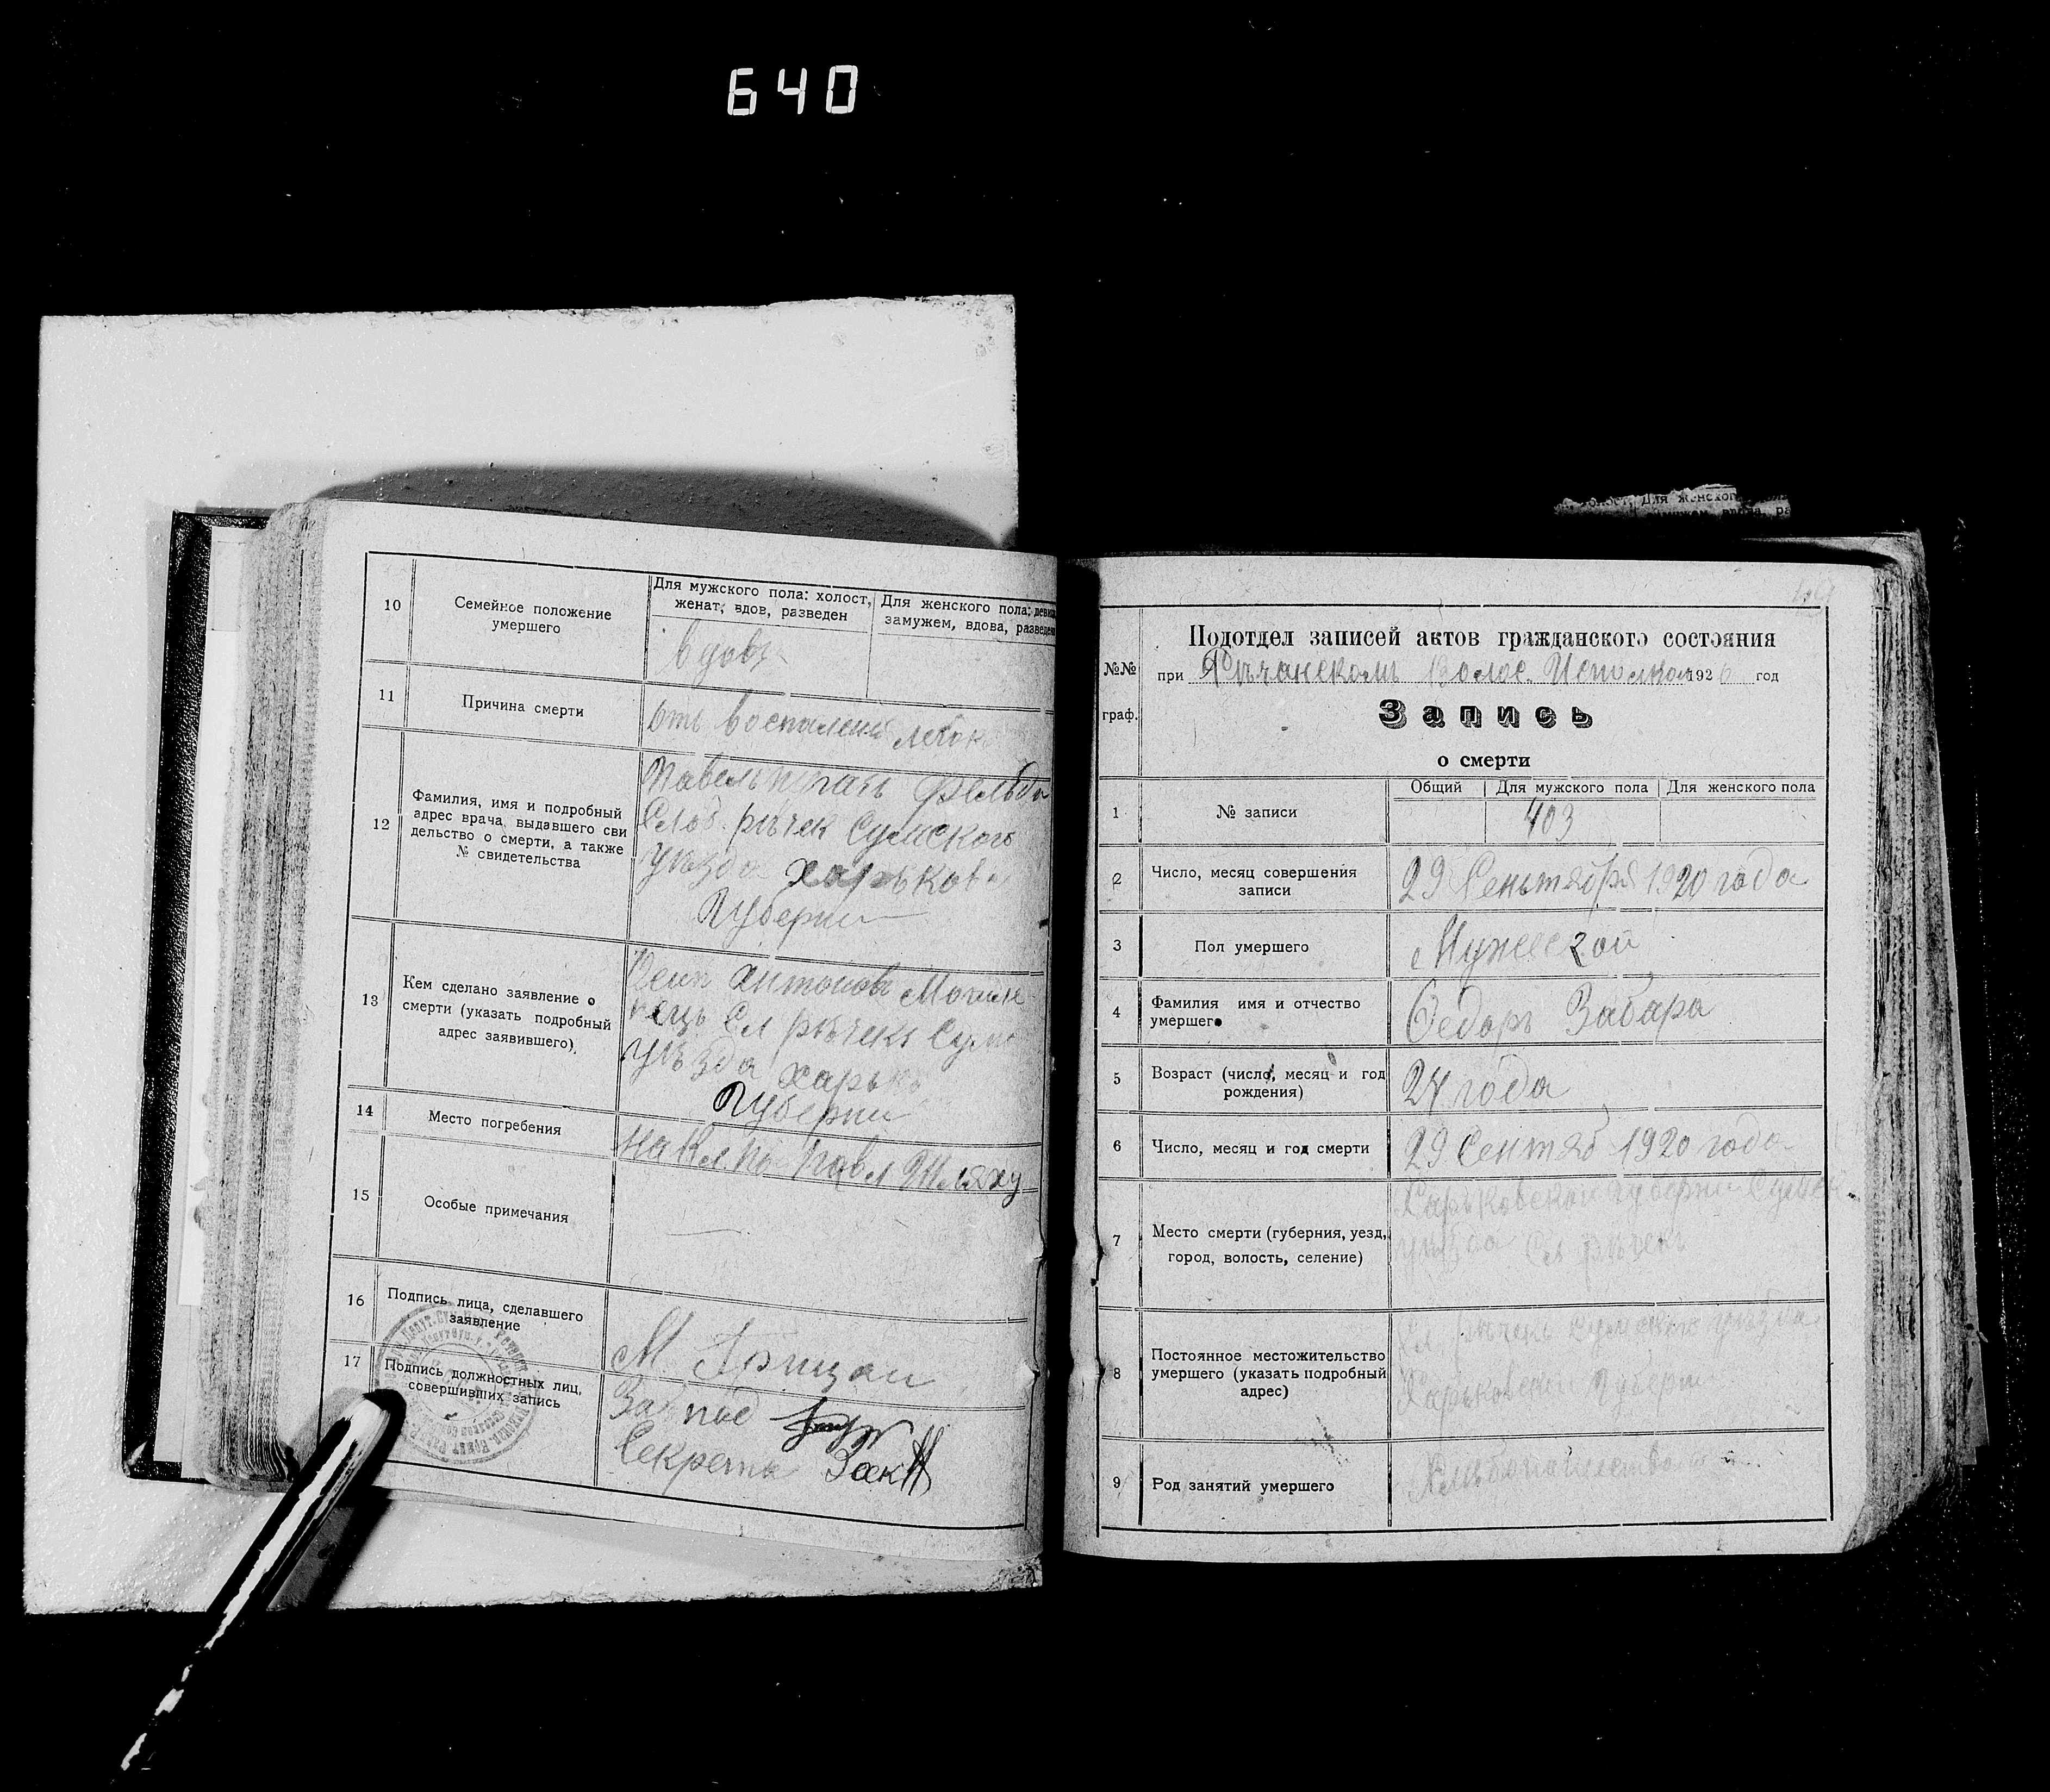 640
10
Семейное положение
умершего
Для мужского пола: холост,
женат, вдов, разведен
Для женского пола: девица
замужем, вдова, разведена
вдовъ
11
Причина смерти
отъ воспаления легк
12
Фамилия, имя и подробный
адрес врача, выдавшего сви
дельство о смерти, а также
№ свидетельства
Павелъ фельд
Слоб. рѣчек Сумского
уѣзда харьков
Губерни
13
Кем сделано заявление о
смерти (указать подробный
адрес заявившего)
Осип Антонов
Сл рѣчекъ Сум
уѣзда харьк
Губерни
14
Место погребения
на Кл Шляху
15
Особые примечания
16
Подпись лица, сделавшего
заявление
М Грицан
17
Подпись должностных лиц,
совершивших запись
Зав под
Секрета
для женского
замужем, вдова, ра
№№
граф.
Подотдел записей актов гражданского состояния
при Рѣчанскомъ Волос. Исполком 1920 год
Запись
о смерти
Общий
Для мужского пола
Для женского пола
1
№ записи
403
2
Число, месяц совершения
записи
29 Сентября 1920 года
3
Пол умершего
Мужской
4
Фамилия имя и отчество
умершего
Федоръ Забара
5
Возраст (число, месяц и год
рождения)
24 года
6
Число, месяц и год смерти
29 Сентяб 1920 года
7
Место смерти (губерния, уезд,
город, волость, селение)
Харьковской губерни Сумск
уѣзда Сл рѣчекъ
8
Постоянное местожительство
умершего (указать подробный
адрес)
Сл. рѣчекъ Сумского уѣзда
Харьковской Губерни
9
Род занятий умершего
Хлѣбопашество